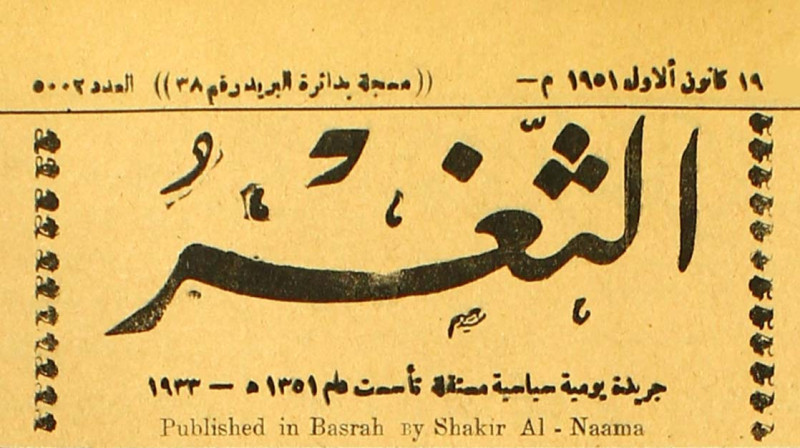 ١٩ كانون ألاول ١٩٥١ م— ((مسجلة بدائرة البريد رقم ٣٨)) العدد ٥٠٠٢
الثَّغْر
جريدة يومية سياسية مستقلة تأسست عام ١٣٥١ ه — ١٩٣٣
Published in Basrah By Shakir Al - Naama